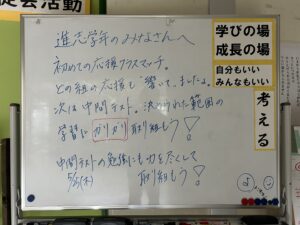 促会活動
進志学年のみなさんへ
初めての応援クラスマッチ。
どの組の応援も響いてましたよ。
次は中間テスト。決められた範囲の
学習に ガリガリ 取り組もう!
中間テストの勉強にも力を尽くして
5/23(木) 取り組もう!
学びの場
成長の場
自分もいい
みんなもいい
考える